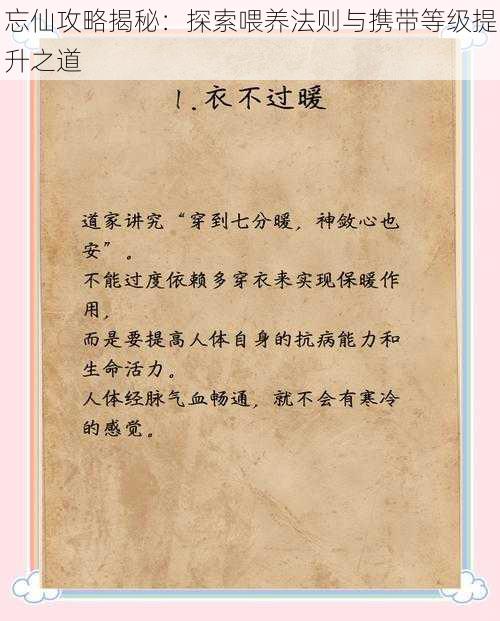 忘仙攻略揭秘：探索喂养法则与携带等级提
升之道
1.衣不过暖
道家讲究“穿到七分暖，神敛心也
安”。
不能过度依赖多穿衣来实现保暖作
用，
而是要提高人体自身的抗病能力和
生命活力。
人体经脉气血畅通，就不会有寒冷
的感觉。